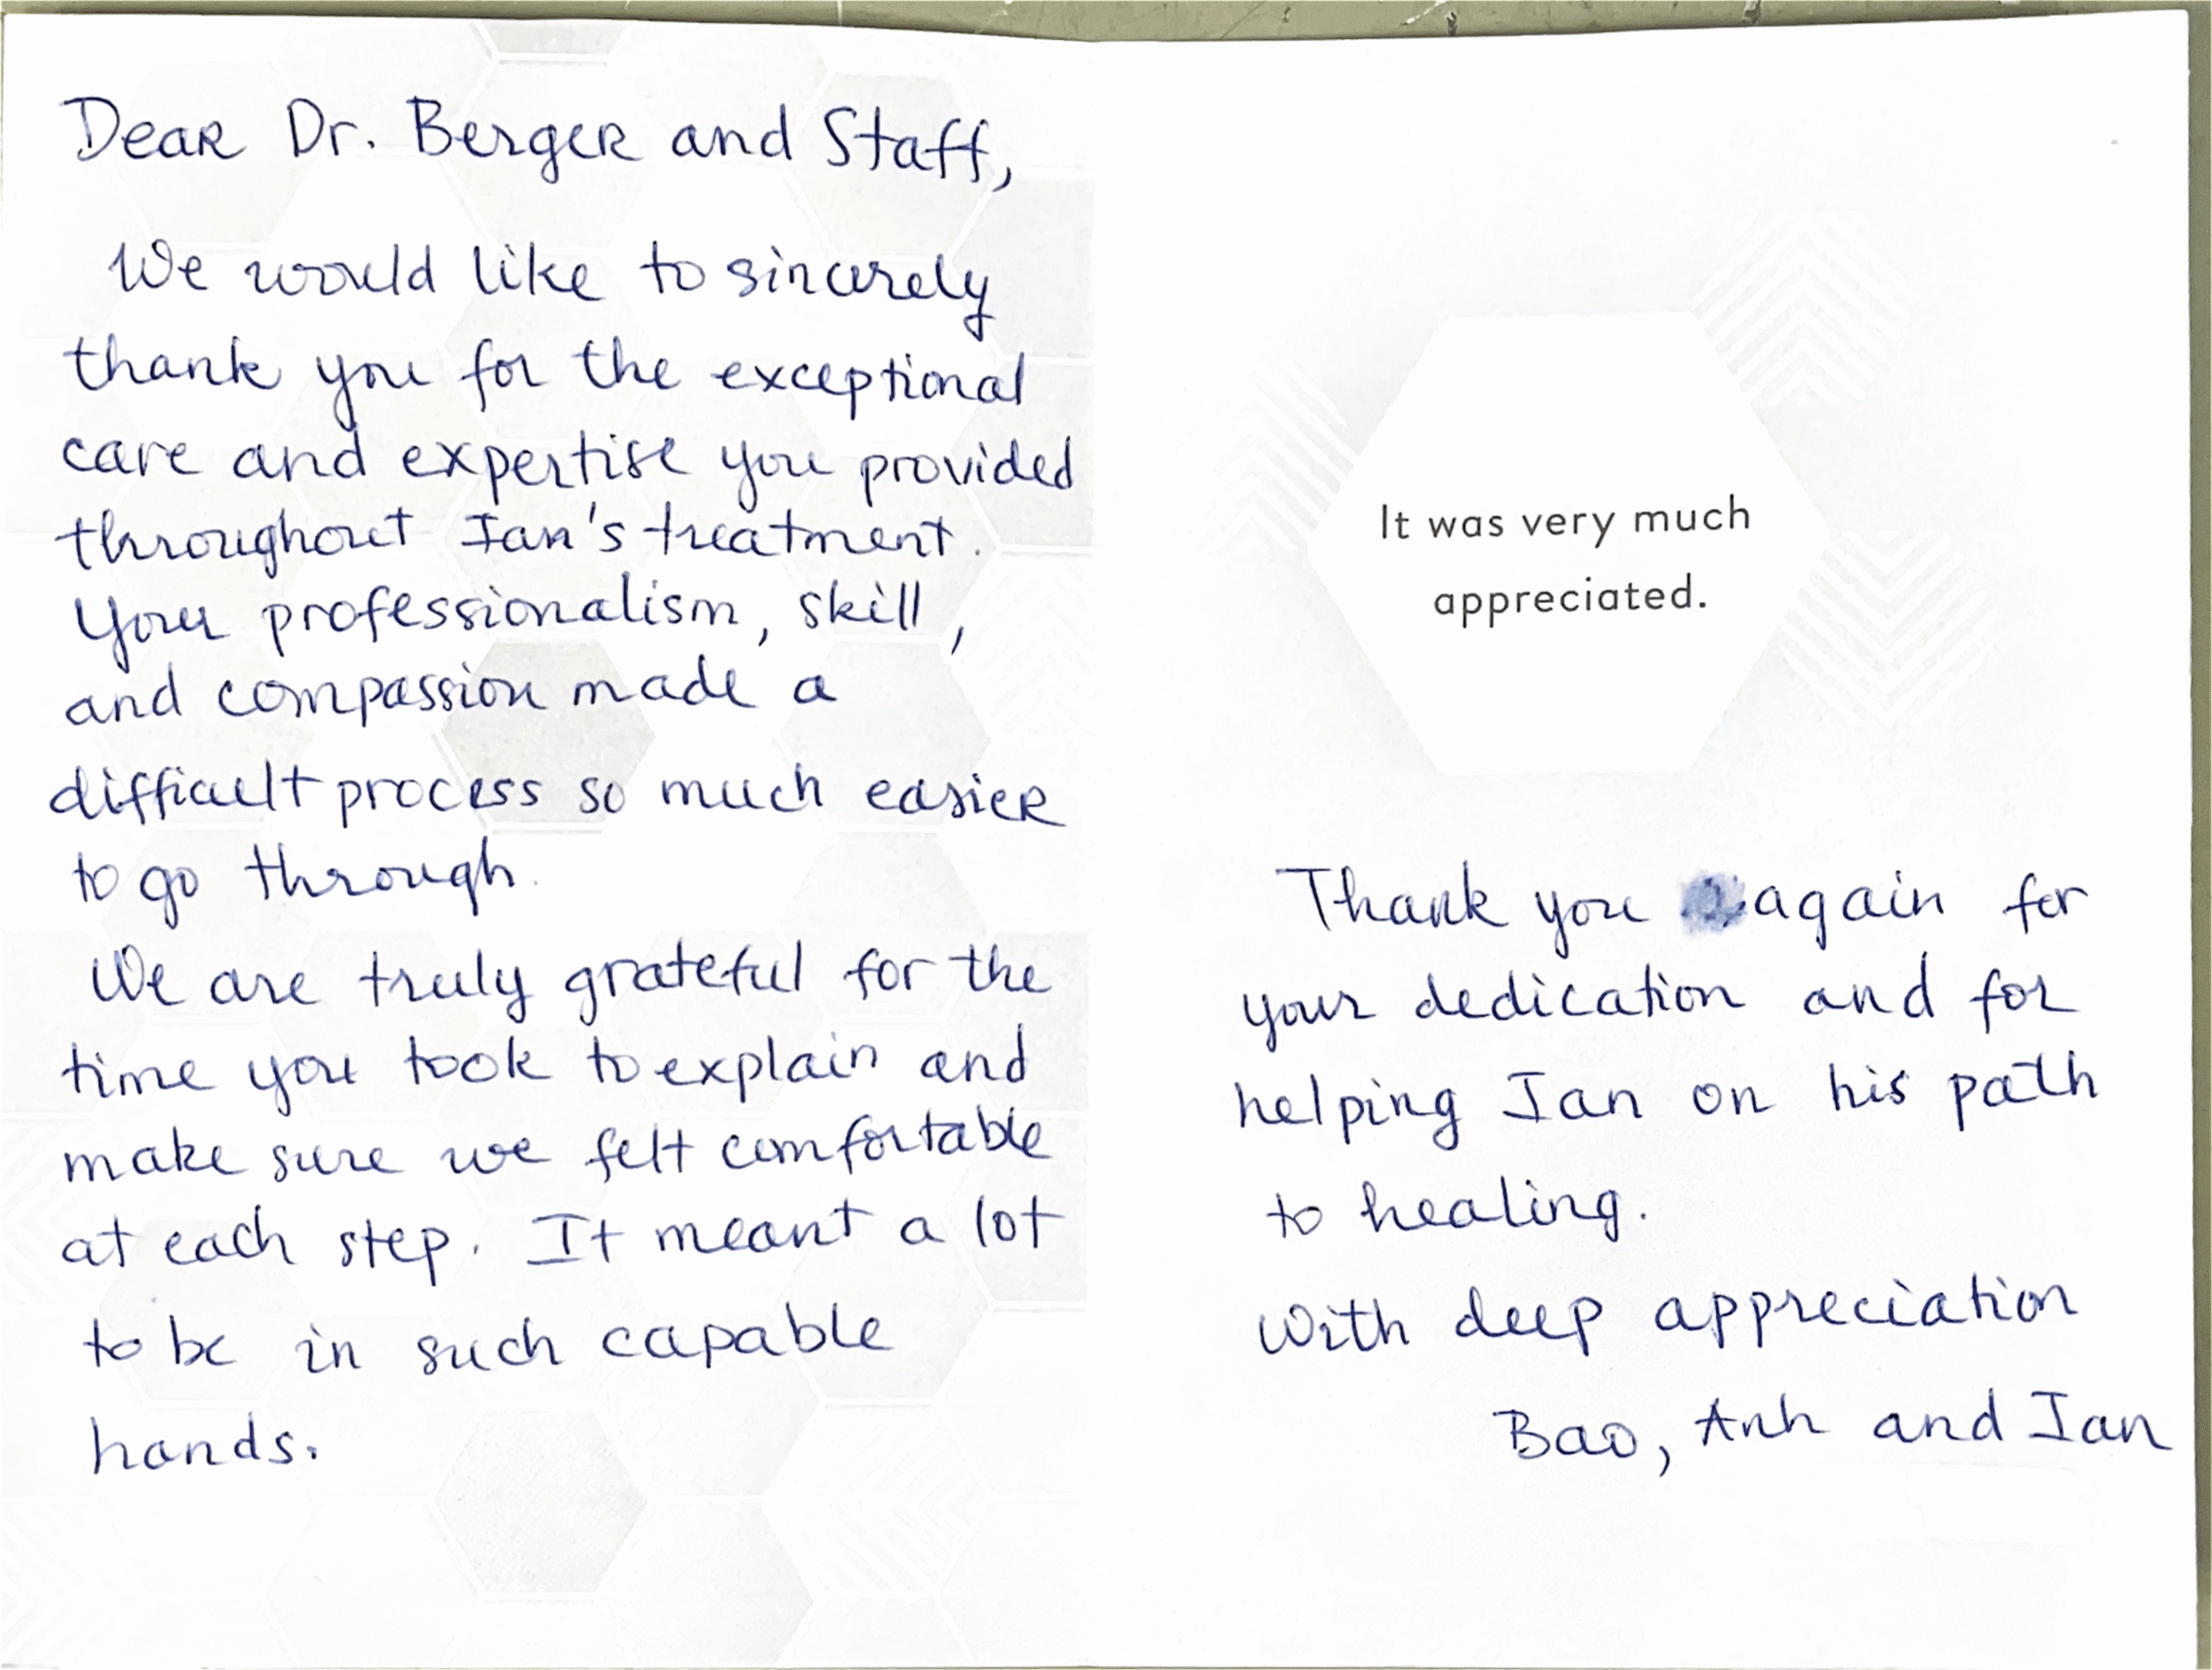 Dear Dr. Berger and Staff,
We would like to sincerely
thank you for the exceptional
care and expertise you provided
throughout Ian's treatment.
Your professionalism, skill,
and compassion made a
difficult process so much easier
to go through.
We are truly grateful for the
time you took to explain and
make sure we felt comfortable
at each step. It meant a lot
to be in such capable
hands.
It was very much
appreciated.
Thank you again for
your dedication and for
helping Ian on his path
to healing.
With deep appreciation
Bao, Anh and Ian